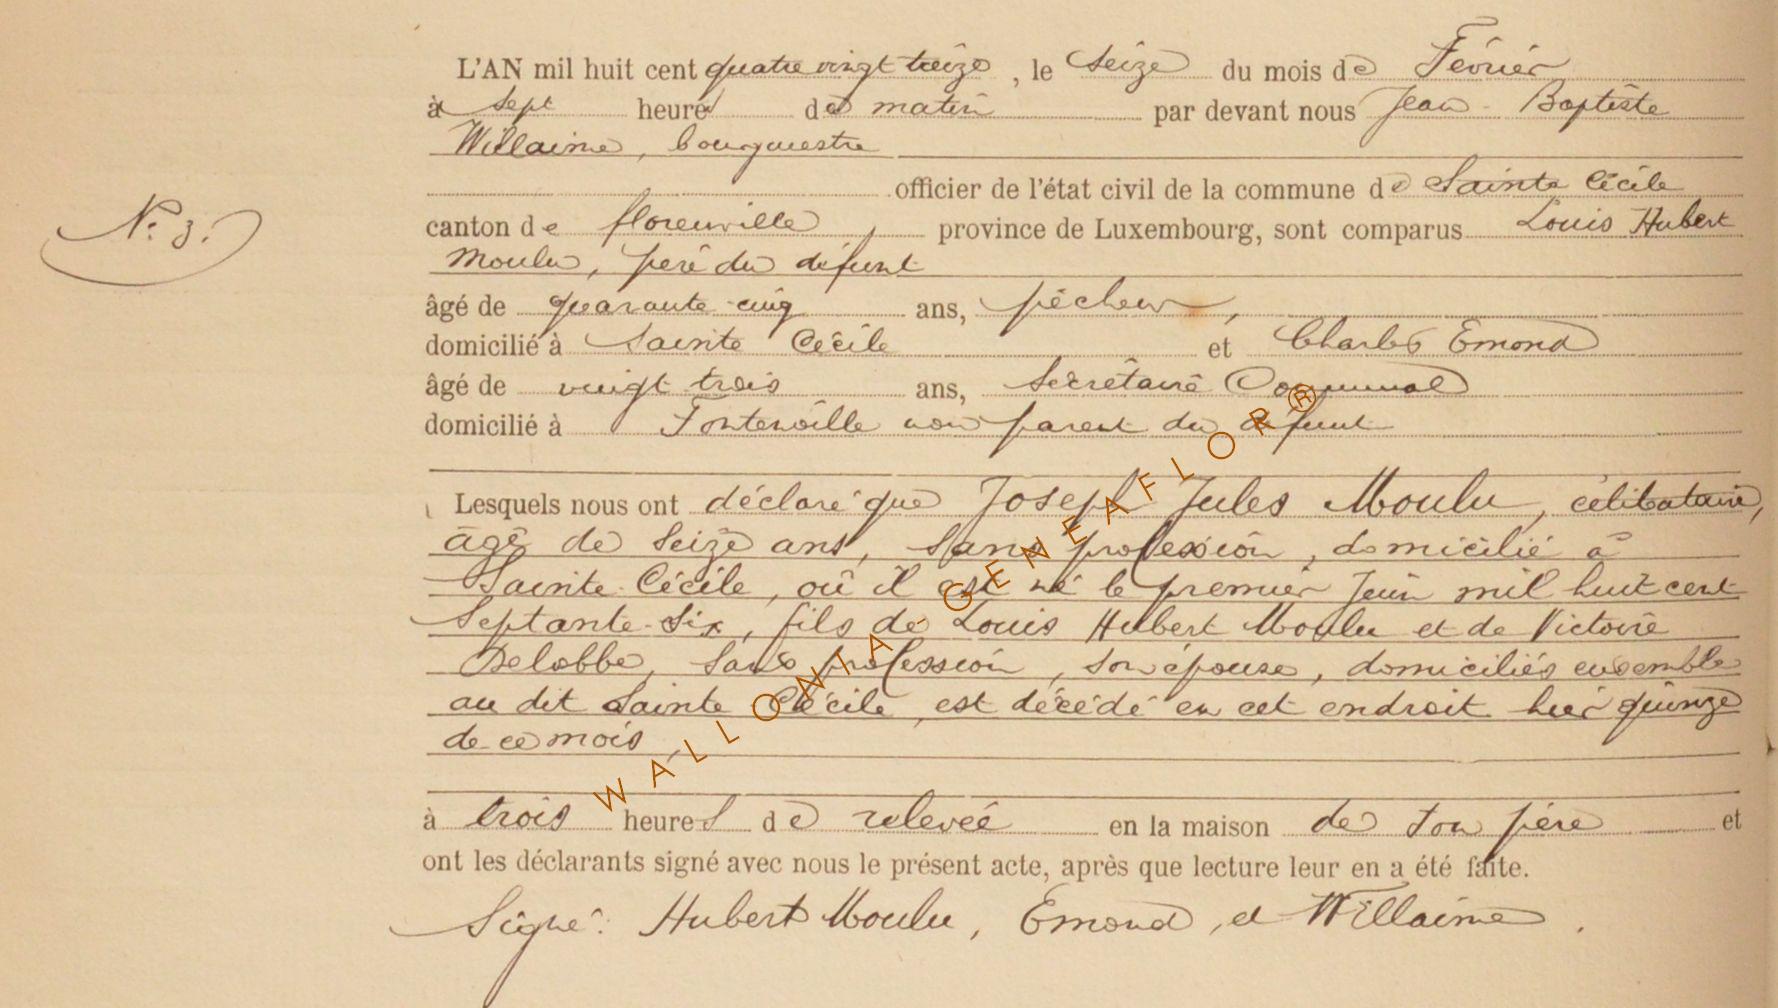 L'AN mil huit cent quatre vingt treize, le seize du mois de Février
à sept heures de matin par devant nous Jean-Baptiste
Willaime, bourgmestre
officier de l'état civil de la commune de Sainte Cécile
N° 3.
canton de florenville, province de Luxembourg, sont comparus Louis Hubert
Moulu, père du défunt
âgé de quarante-cinq ans, pêcheur,
domicilié à Sainte Cécile et Charles Emond
âgé de vingt trois ans, Secrétaire Communal
domicilié à Fontenoille non parent du défunt
Lesquels nous ont déclaré que Joseph Jules Moulu, célibataire,
âgé de seize ans, sans profession, domicilié à
Sainte-Cécile, où il est né le premier Juin mil huit cent
septante-six, fils de Louis Hubert Moulu et de Victoire
Delobbe, sans profession, son épouse, domiciliés ensemble
au dit Sainte Cécile, est décédé en cet endroit hier quinze
de ce mois,
à trois heures de relevée en la maison de son père et
ont les déclarants signé avec nous le présent acte, après que lecture leur en a été faite.
Signé: Hubert Moulu, Emond, et Willaime.
WALLONIA - GENEAFLOR®